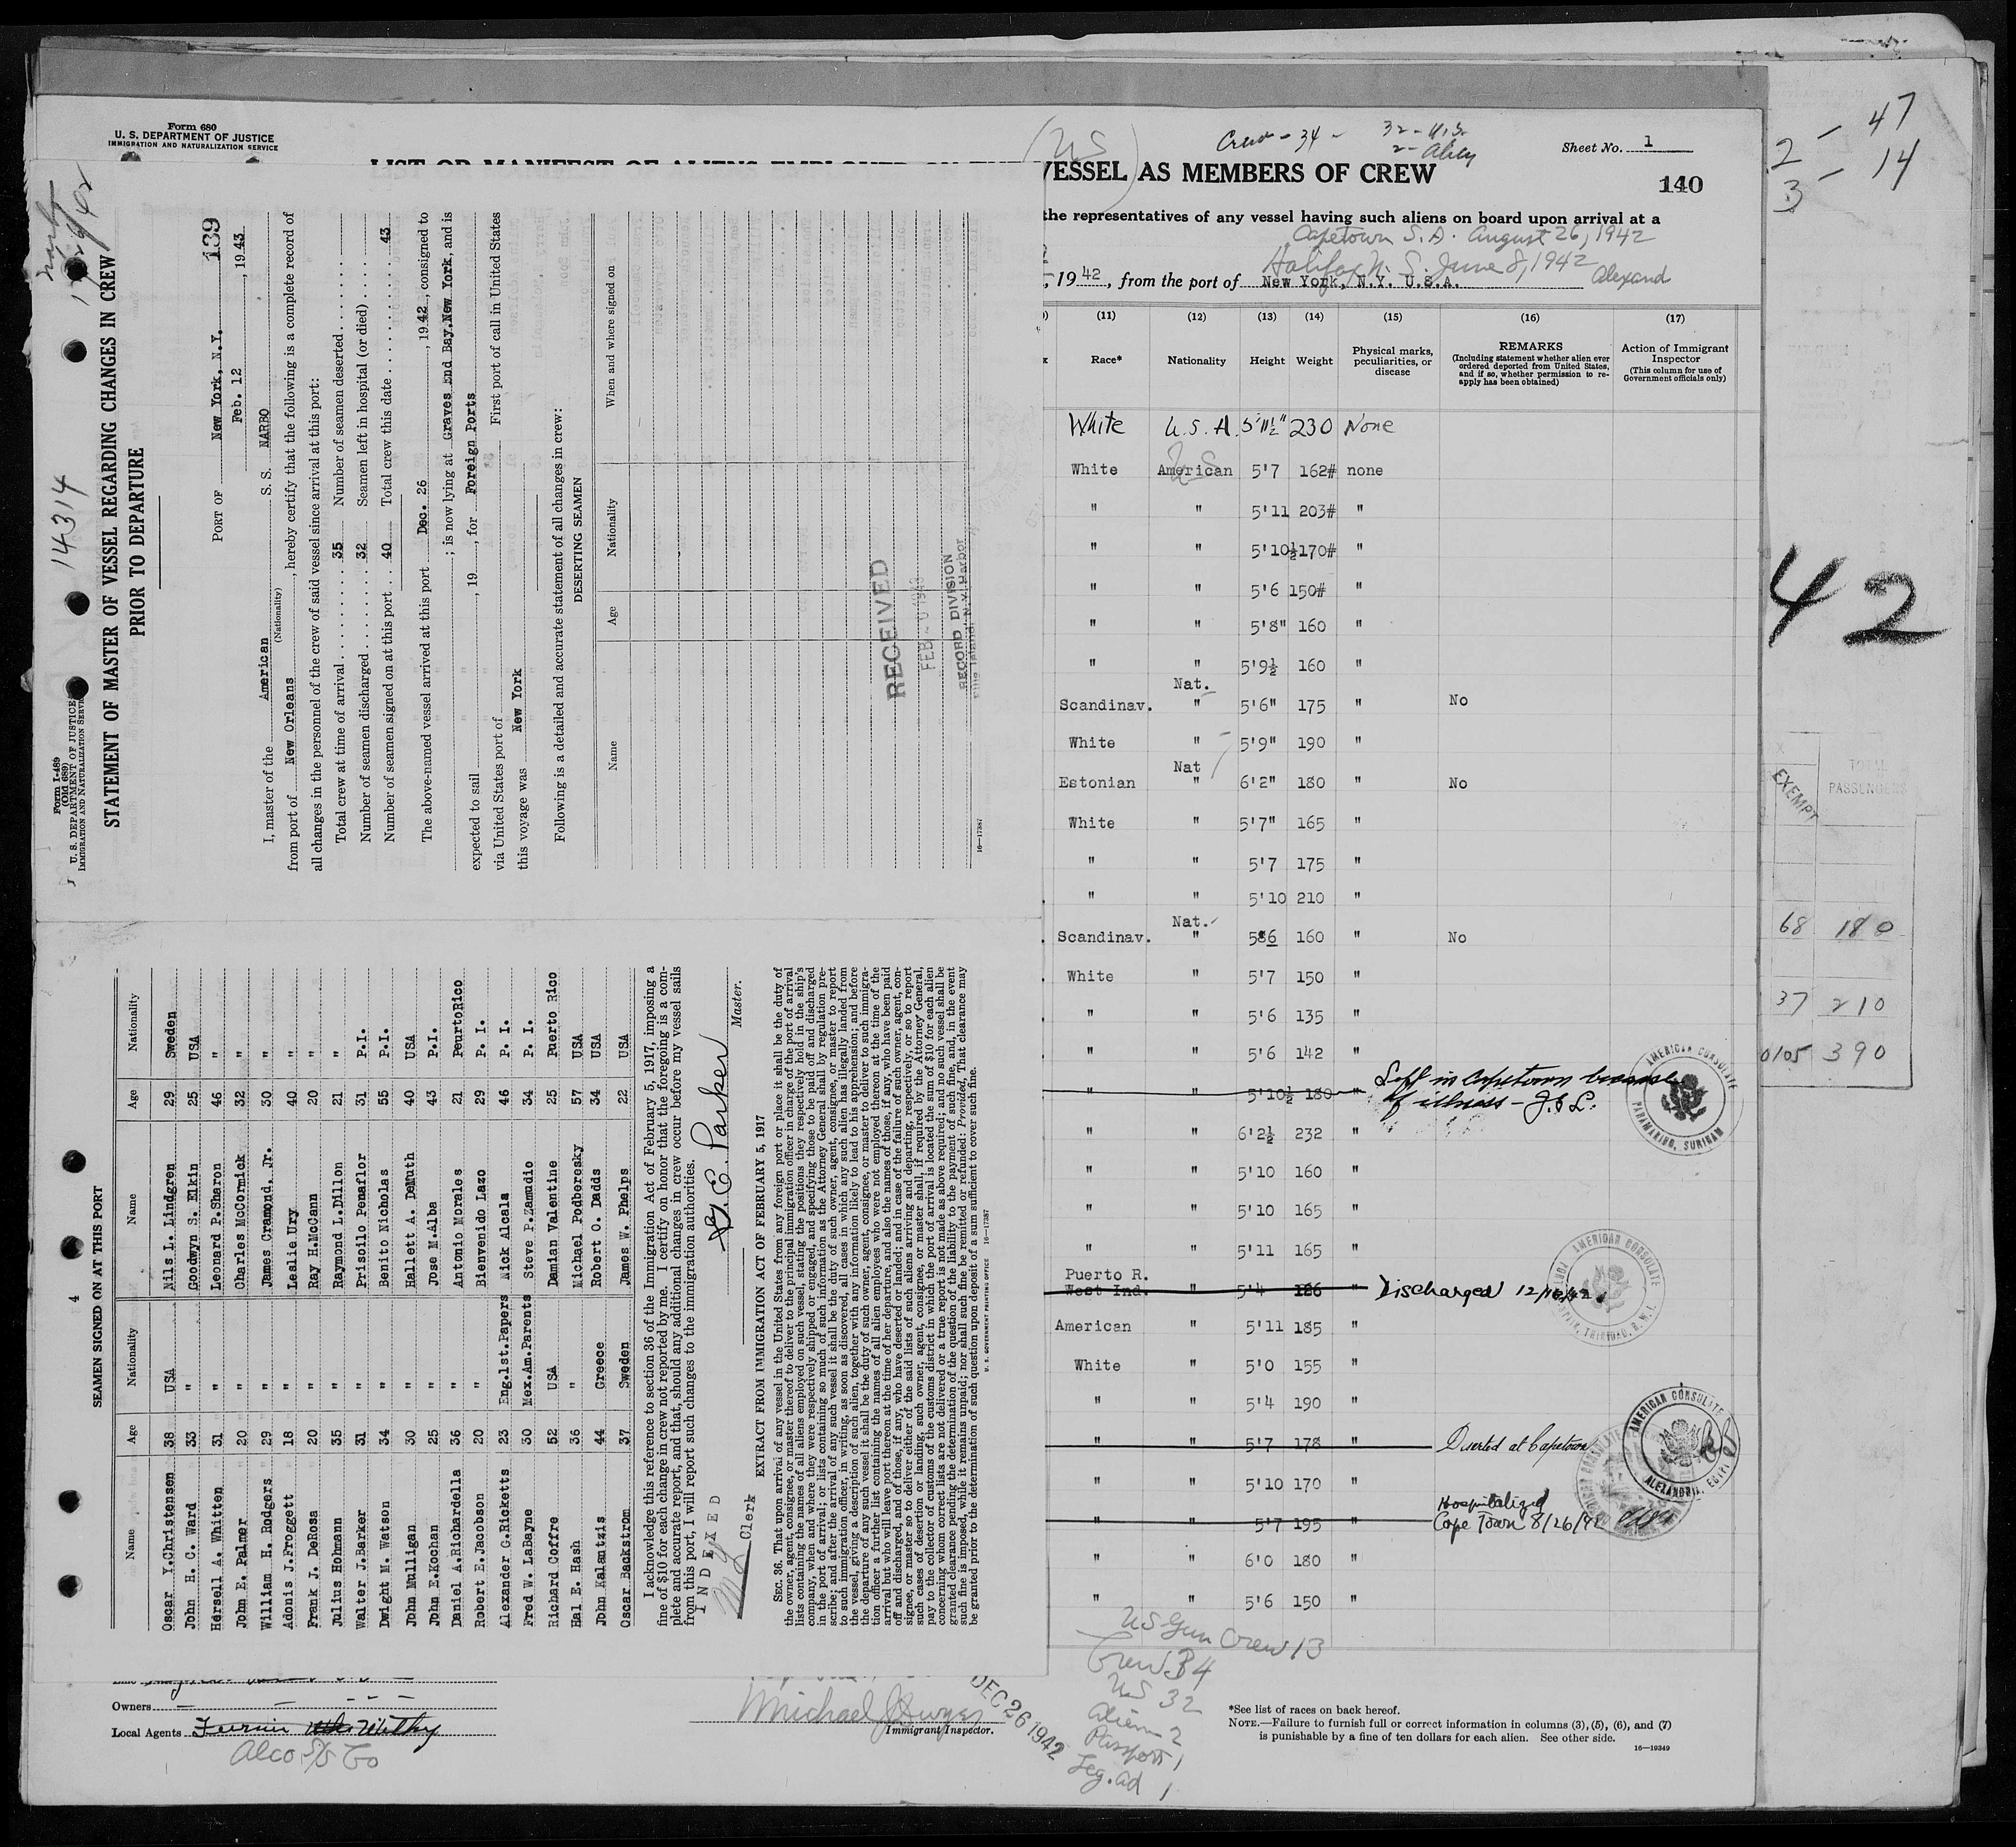 Form 680
U. S. DEPARTMENT OF JUSTICE
IMMIGRATION AND NATURALIZATION SERVICE
(US)
Crew - 34 - 32 - U.S.
2 - Alien
Sheet No. 1
VESSEL AS MEMBERS OF CREW
140
the representatives of any vessel having such aliens on board upon arrival at a
Capetown S.A. August 26, 1942
Halifax N. S. June 8, 1942
, 1942, from the port of New York, N.Y. U.S.A. Alexand
(11) (12) (13) (14) (15) (16) (17)
Race* Nationality Height Weight Physical marks, peculiarities, or disease REMARKS (Including statement whether alien ever ordered deported from United States, and if so, whether permission to reapply has been obtained) Action of Immigrant Inspector (This column for use of Government officials only)
White U.S.A. 5'11½" 230 None
White American 5'7 162# none
" " 5'11 203# "
" " 5'10½ 170# "
" " 5'6 150# "
" " 5'8" 160 "
" " 5'9½ 160 "
Nat.
Scandinav. " 5'6" 175 " No
White " 5'9" 190 "
Nat
Estonian " 6'2" 180 " No
White " 5'7" 165 "
" " 5'7 175 "
" " 5'10 210 "
Nat.
Scandinav. " 5'6 160 " No
White " 5'7 150 "
" " 5'6 135 "
" " 5'6 142 "
" " 5'10½ 180 " Left in Capetown because
of illness - J.S.L.
" " 6'2½ 232 "
" " 5'10 160 "
" " 5'10 165 "
" " 5'11 165 "
Puerto R.
West Ind. " 5'4 186 " Discharged 12/10/42
American " 5'11 185 "
White " 5'0 155 "
" " 5'4 190 "
" " 5'7 178 " Deserted at Capetown
" " 5'10 170 "
Hospitalized
" " 5'7 195 Cape Town 8/26/42
" " 6'0 180 "
" " 5'6 150 "
AMERICAN CONSULATE PARAMARIBO, SURINAM
AMERICAN CONSULATE PORT OF SPAIN, TRINIDAD, B.W.I.
AMERICAN CONSULATE ALEXANDRIA, EGYPT
US Gun Crew 13
Crew 34
US 32
Alien - 2
Passport 1
Leg. ad 1
*See list of races on back hereof.
NOTE.—Failure to furnish full or correct information in columns (3), (5), (6), and (7)
is punishable by a fine of ten dollars for each alien. See other side.
16—19349
Owners
Local Agents Furness Withy
Alco S/S Co
Michael J. Dwyer
Immigrant Inspector.
DEC 26 1942
2 - 47
3 - 14
42
EXEMPT
TOTAL PASSENGERS
68 180
37 210
0105 390
14314
Form I-489
(Old 689)
U. S. DEPARTMENT OF JUSTICE
IMMIGRATION AND NATURALIZATION SERVICE
STATEMENT OF MASTER OF VESSEL REGARDING CHANGES IN CREW
PRIOR TO DEPARTURE
139
PORT OF New York, N.Y.
Feb. 12, 1943
I, master of the American S. S. NARBO
(Nationality)
from port of New Orleans, hereby certify that the following is a complete record of
all changes in the personnel of the crew of said vessel since arrival at this port:
Total crew at time of arrival 35 Number of seamen deserted
Number of seamen discharged 32 Seamen left in hospital (or died)
Number of seamen signed on at this port 40 Total crew this date 43
The above-named vessel arrived at this port Dec. 26, 1942, consigned to
; is now lying at Graves End Bay, New York, and is
expected to sail , 19 , for Foreign Ports
via United States port of First port of call in United States
this voyage was New York
Following is a detailed and accurate statement of all changes in crew:
DESERTING SEAMEN
Name Age Nationality When and where signed on
RECEIVED
RECORD DIVISION
16—17387
4
SEAMEN SIGNED ON AT THIS PORT
Name Age Nationality Name Age Nationality
Oscar Y.Christensen 38 USA Nils L. Lindgren 29 Sweden
John H. C. Ward 33 " Goodwyn S. Elkin 25 USA
Hersell A. Whitten 31 " Leonard P.Sharon 46 "
John E. Palmer 20 " Charles McCormick 32 "
William H. Rodgers 29 " James Cramond. Jr. 30 "
Adonis J.Froggett 18 " Leslie Ury 40 "
Frank J. DeRosa 20 " Ray H.McCann 20 "
Julius Hohmann 35 " Raymond L.Dillon 21 "
Walter J.Barker 31 " Prisollo Penaflor 31 P.I.
Dwight M. Watson 34 " Benito Nicholas 55 P.I.
John Mulligan 30 " Hallett A. DeMuth 40 USA
John E.Kochan 25 " Jose M.Alba 43 P.I.
Daniel A.Richardella 36 " Antonio Morales 21 PeurtoRico
Robert E.Jacobson 20 " Bienvenido Lazo 29 P. I.
Alexander G.Ricketts 23 Eng.1st.Papers Nick Alcala 46 P. I.
Fred W. LaBayne 30 Mex.Am.Parents Steve P.Zamudio 34 P. I.
Richard Coffre 52 USA Damian Valentine 25 Puerto Rico
Hal E. Hash 36 " Michael Podberesky 57 USA
John Kalantzis 44 Greece Robert O. Dadds 34 USA
Oscar Backstrom 37 Sweden James W. Phelps 22 USA
I acknowledge this reference to section 36 of the Immigration Act of February 5, 1917, imposing a
fine of $10 for each change in crew not reported by me. I certify on honor that the foregoing is a com-
plete and accurate report, and that, should any additional changes in crew occur before my vessel sails
from this port, I will report such changes to the immigration authorities.
INDEXED
Clerk
G. E. Parker
Master.
EXTRACT FROM IMMIGRATION ACT OF FEBRUARY 5, 1917
SEC. 36. That upon arrival of any vessel in the United States from any foreign port or place it shall be the duty of
the owner, agent, consignee, or master thereof to deliver to the principal immigration officer in charge of the port of arrival
lists containing the names of all aliens employed on such vessel, stating the positions they respectively hold in the ship's
company, when and where they were respectively shipped or engaged, and specifying those to be paid off and discharged
in the port of arrival; or lists containing so much of such information as the Attorney General shall by regulation pre-
scribe; and after the arrival of any such vessel it shall be the duty of such owner, agent, consignee, or master to report
to such immigration officer, in writing, as soon as discovered, all cases in which any such alien has illegally landed from
the vessel, giving a description of such alien, together with any information likely to lead to his apprehension; and before
the departure of any such vessel it shall be the duty of such owner, agent, consignee, or master to deliver to such immigra-
tion officer a further list containing the names of all alien employees who were not employed thereon at the time of the
arrival but who will leave port thereon at the time of her departure, and also the names of those, if any, who have been paid
off and discharged, and of those, if any, who have deserted or landed; and in case of the failure of such owner, agent, con-
signee, or master so to deliver either of the said lists of such aliens arriving and departing, respectively, or so to report
such cases of desertion or landing, such owner, agent, consignee, or master shall, if required by the Attorney General,
pay to the collector of customs of the customs district in which the port of arrival is located the sum of $10 for each alien
concerning whom correct lists are not delivered or a true report is not made as above required; and no such vessel shall be
granted clearance pending the determination of the question of the liability to the payment of such fine, and, in the event
such fine is imposed, while it remains unpaid; nor shall such fine be remitted or refunded: Provided, That clearance may
be granted prior to the determination of such question upon deposit of a sum sufficient to cover such fine.
U. S. GOVERNMENT PRINTING OFFICE 16—17387